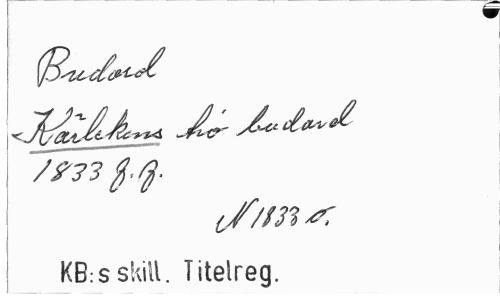 Budord
Kärlekens tio budord
1833 g.g.
N 1833 o.
KB:s skill. Titelreg.